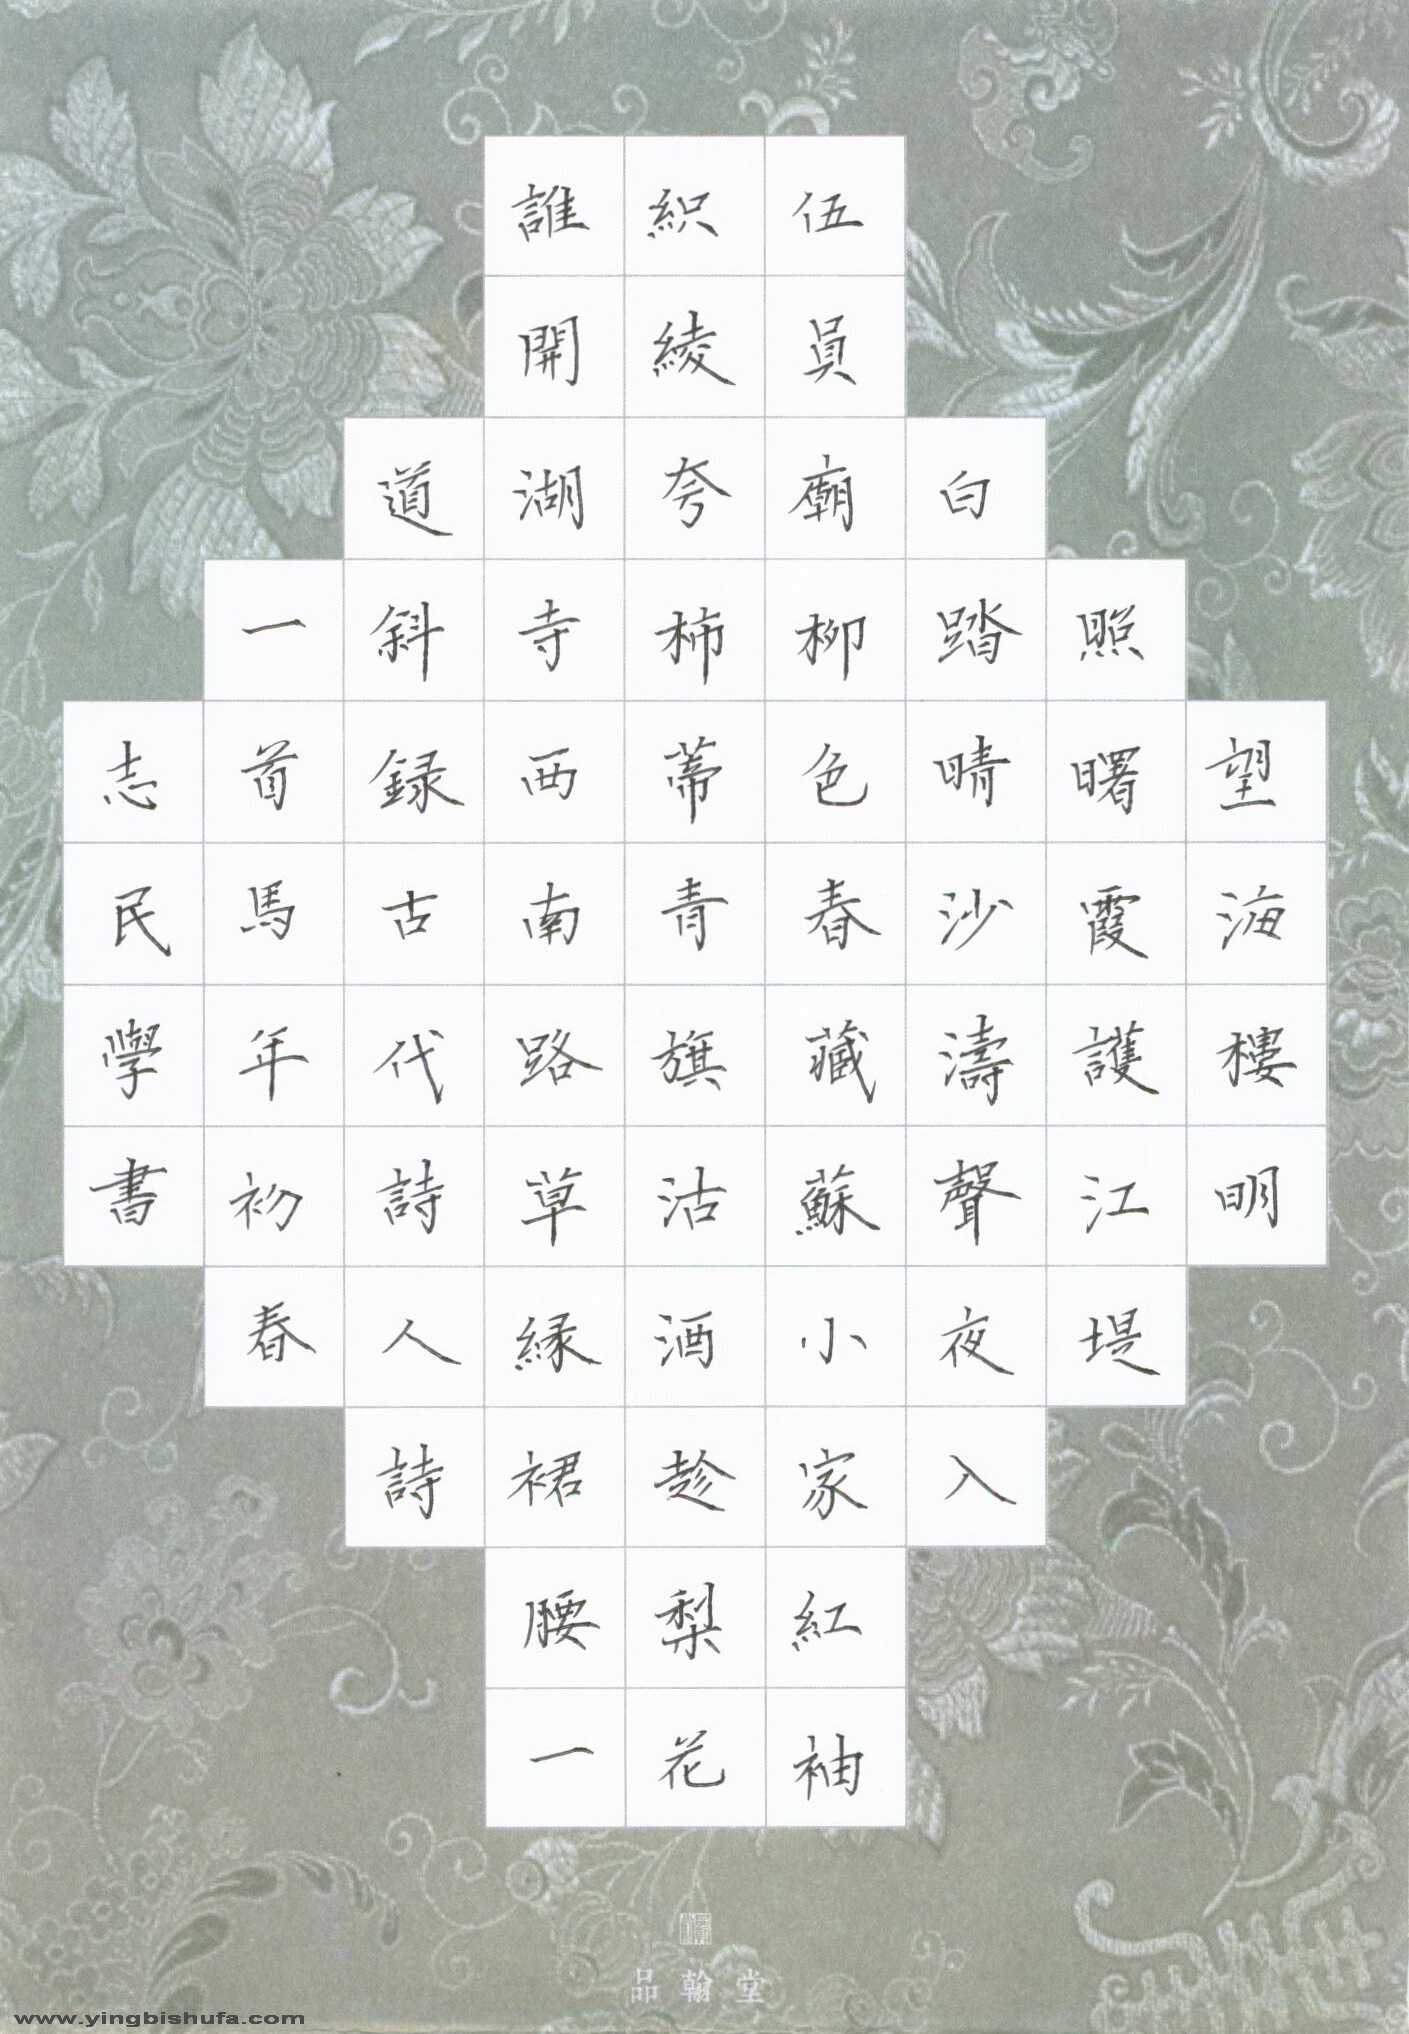 望海樓明
照曙霞護江堤
白踏晴沙濤聲夜入
伍員廟柳色春藏蘇小家紅袖
織綾夸柿蒂青旗沽酒趁梨花
誰開湖寺西南路草緑裙腰一
道斜録古代詩人詩
一首馬年初春
志民學書
品翰堂
www.yingbishufa.com